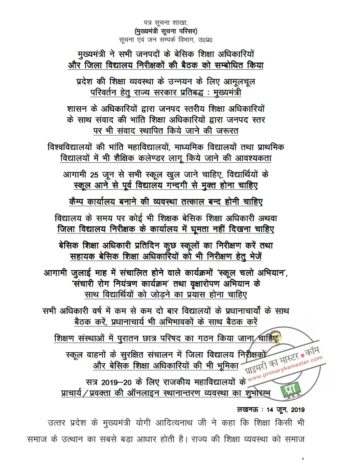 पत्र सूचना शाखा
(मुख्यमंत्री सूचना परिसर)
सूचना एवं जन सम्पर्क विभाग, उ0प्र0
मुख्यमंत्री ने सभी जनपदों के बेसिक शिक्षा अधिकारियों
और जिला विद्यालय निरीक्षकों की बैठक को सम्बोधित किया
प्रदेश की शिक्षा व्यवस्था के उन्नयन के लिए आमूलचूल
परिवर्तन हेतु राज्य सरकार प्रतिबद्ध : मुख्यमंत्री
शासन के अधिकारियों द्वारा जनपद स्तरीय शिक्षा अधिकारियों
के साथ संवाद की भांति शिक्षा अधिकारियों द्वारा जनपद स्तर
पर भी संवाद स्थापित किये जाने की जरूरत
विश्वविद्यालयों की भांति महाविद्यालयों, माध्यमिक विद्यालयों तथा प्राथमिक
विद्यालयों में भी शैक्षिक कलेण्डर लागू किये जाने की आवश्यकता
आगामी 25 जून से सभी स्कूल खुल जाने चाहिए, विद्यार्थियों के
स्कूल आने से पूर्व विद्यालय गन्दगी से मुक्त होना चाहिए
कैम्प कार्यालय बनाने की व्यवस्था तत्काल बन्द होनी चाहिए
विद्यालय के समय पर कोई भी शिक्षक बेसिक शिक्षा अधिकारी अथवा
जिला विद्यालय निरीक्षक के कार्यालय में घूमता नहीं दिखना चाहिए
बेसिक शिक्षा अधिकारी प्रतिदिन कुछ स्कूलों का निरीक्षण करें तथा
सहायक बेसिक शिक्षा अधिकारियों को भी निरीक्षण हेतु भेजें
आगामी जुलाई माह में संचालित होने वाले कार्यक्रमों 'स्कूल चलो अभियान',
'संचारी रोग नियंत्रण कार्यक्रम' तथा वृक्षारोपण अभियान के
साथ विद्यार्थियों को जोड़ने का प्रयास होना चाहिए
सभी अधिकारी वर्ष में कम से कम दो बार विद्यालयों के प्रधानाचार्यों के साथ
बैठक करें, प्रधानाचार्य भी अभिभावकों के साथ बैठक करें
शिक्षण संस्थाओं में पुरातन छात्र परिषद का गठन किया जाना चाहिए
स्कूल वाहनों के सुरक्षित संचालन में जिला विद्यालय निरीक्षकों
और बेसिक शिक्षा अधिकारियों की भी भूमिका
प्राइमरी का मास्टर.कॉम
www.primarykamaster.com
सत्र 2019-20 के लिए राजकीय महाविद्यालयों के
प्राचार्य/प्रवक्ता की ऑनलाइन स्थानान्तरण व्यवस्था का शुभारम्भ
लखनऊ : 14 जून, 2019
उत्तर प्रदेश के मुख्यमंत्री योगी आदित्यनाथ जी ने कहा कि शिक्षा किसी भी
समाज के उत्थान का सबसे बड़ा आधार होती है। राज्य की शिक्षा व्यवस्था को समाज